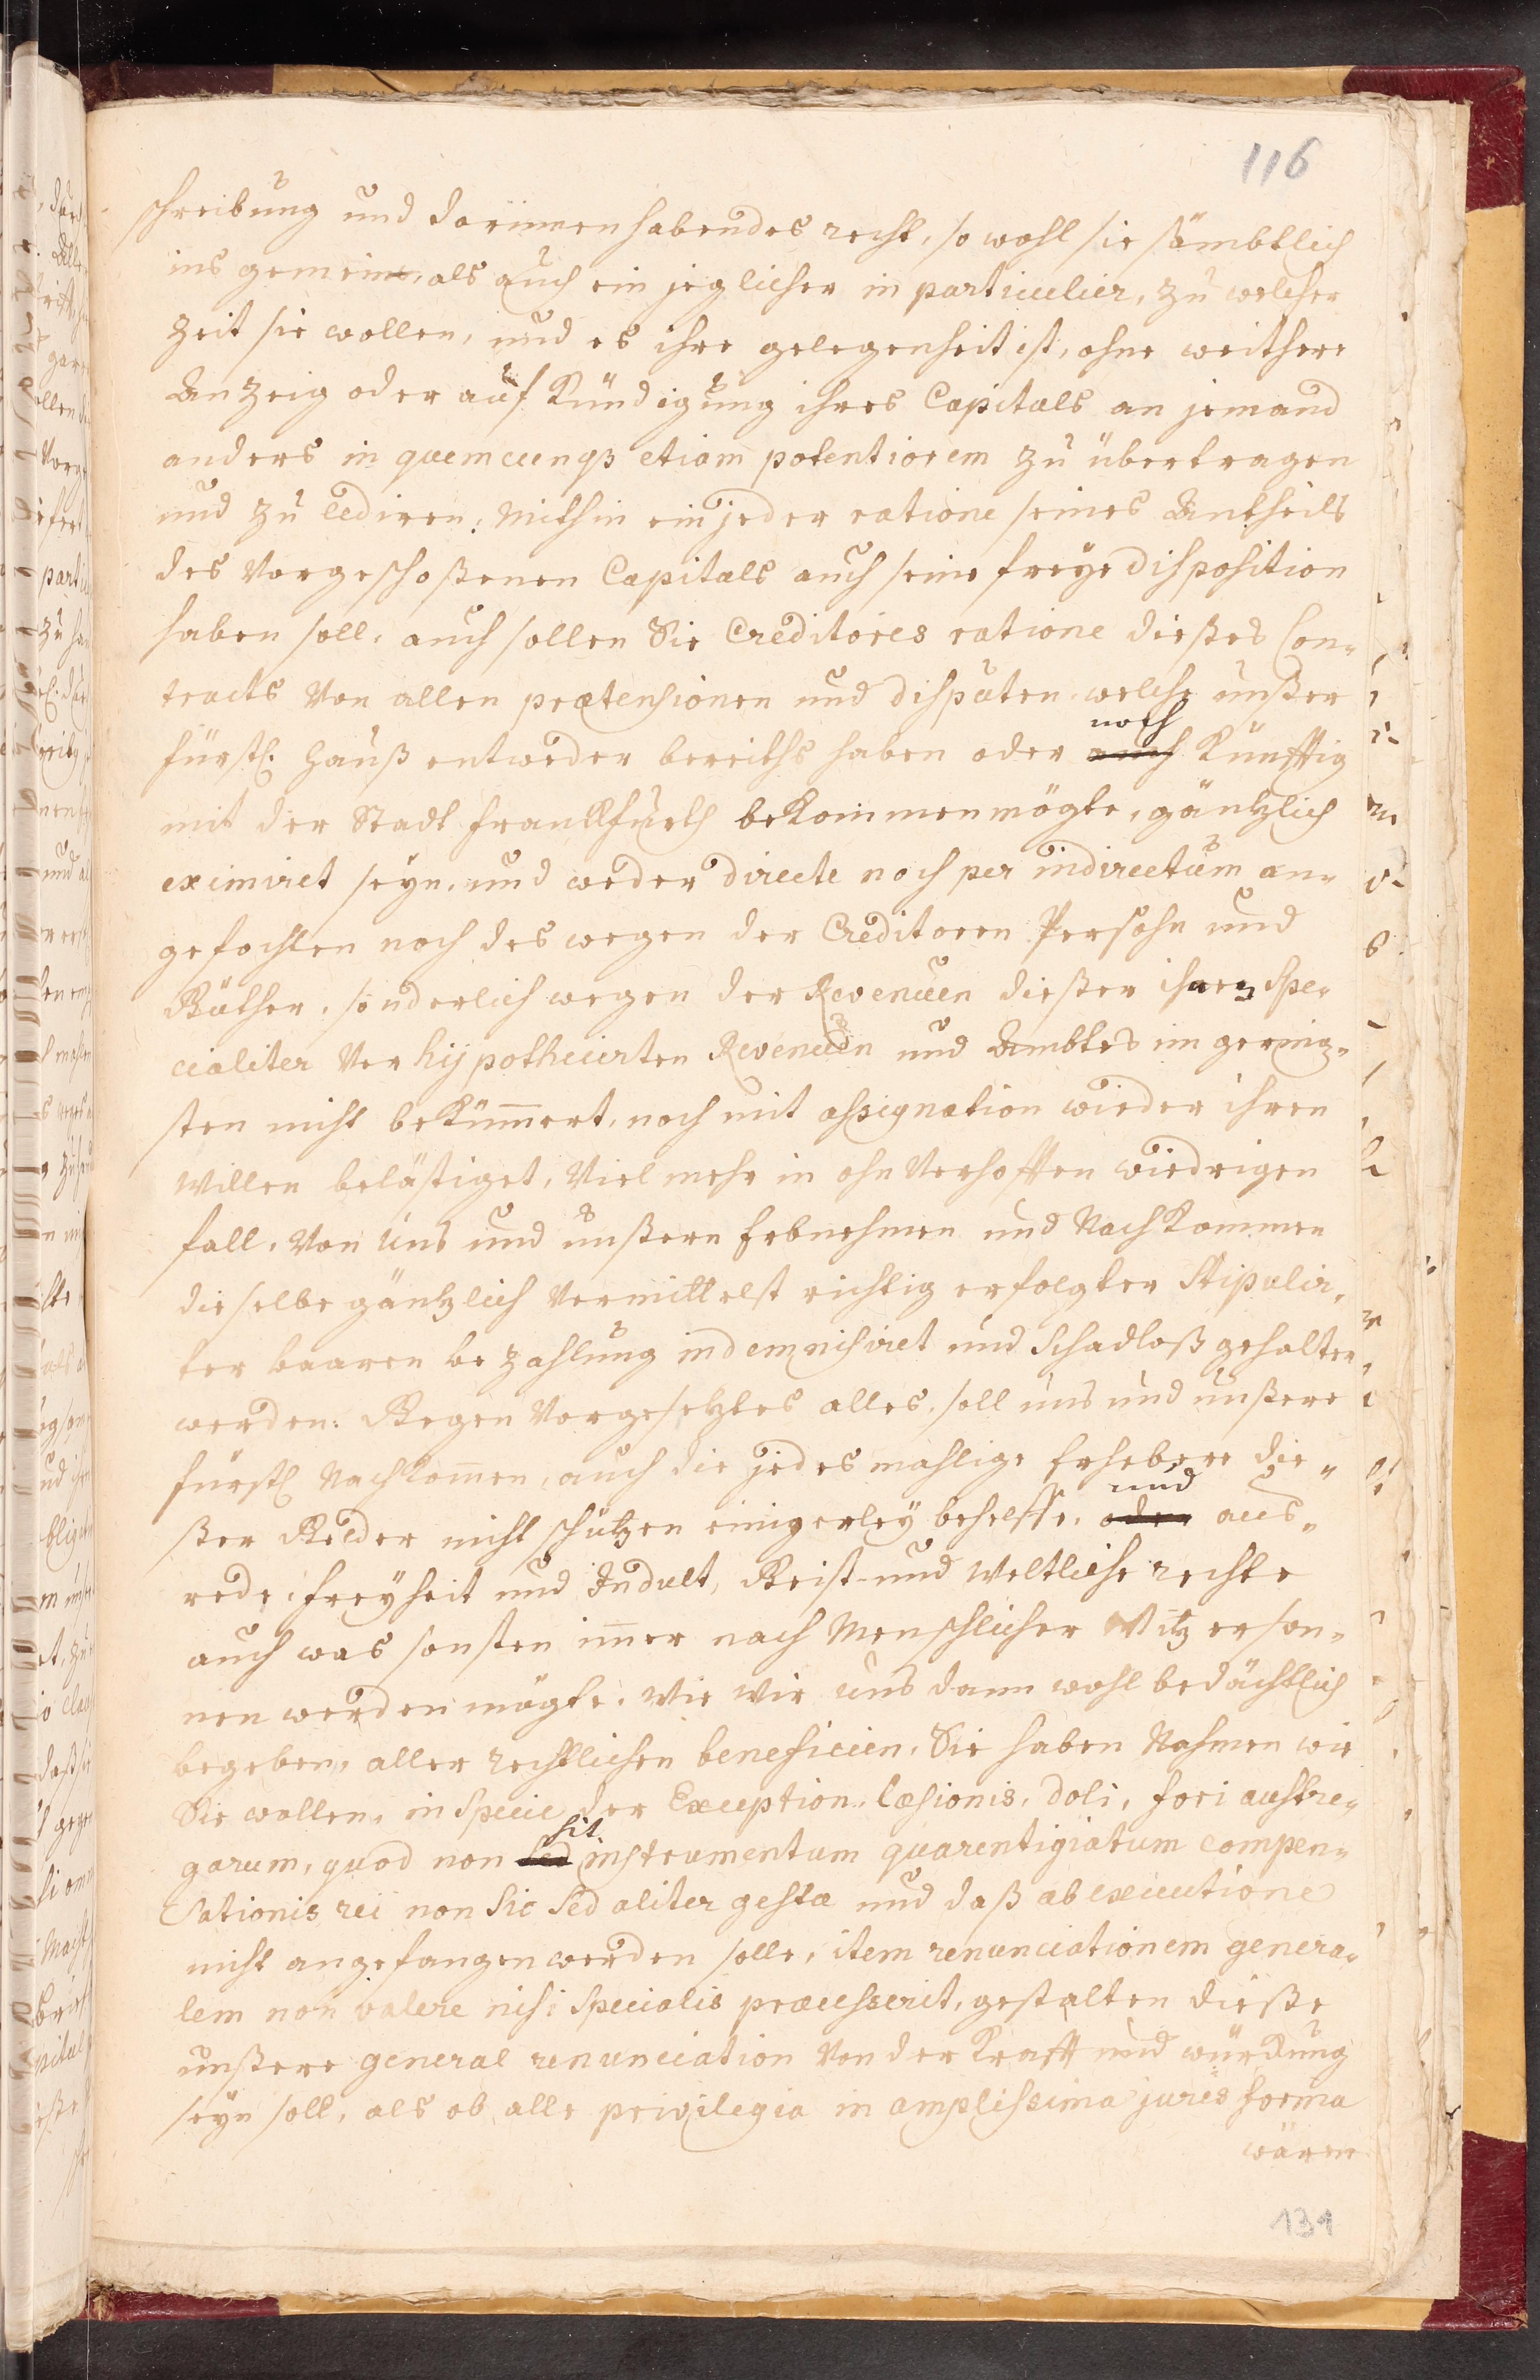 116
schreibung und darinnen habendes recht, so wohl sie sämbtlich
ins gemein, als auch ein jeglicher in particulier, zu welcher
zeit sie wollen, und es ihre gelegenheit ist, ohne weithere
Anzeig oder auf Kündigung ihres Capitals an jemand
anders in quemcunqꝫ etiam potentiorem zu übertragen
und zu cediren; Mithin ein jeder ratione seines Antheils
des Vorgeschoßenen Capitals auch seine freye disposition
haben soll, auch sollen Sie Creditores ratione dießes Con-
tracts Von allen prætensionen und disputen, welche unßer
noch
fürstl. Hauß entweder bereiths haben oder auch Künfftig
mit der Stadt Franckfurth beKommen mögte, gäntzlich
eximiret seyn, und weder directe noch per indirectum an-
gefochten noch des wegen der Creditoren Persohn und
Güther, sonderlich wegen der Revenuen dießer ihnen Spe-
cialiter Ver hypothecirten Revenuen und Ambtes im gering-
sten nicht beKüm̄ert, noch mit assignation wieder ihren
Willen belästiget, Viel mehr in ohn Verhofften wiedrigen
fall, Von Uns und unßern Erbnehmen und NachKommen
dieselbe gäntzlich Vermittelst richtig erfolgter Stipulir-
ter baaren bezahlung indemnisiret und Schadloß gehalten
werden. Gegen Vorgesetztes alles, soll uns und unßere
fürstl NachKom̄en, auch die jedesmahlige Erhebere die-
und
ßer Gelder nicht schützen einigerley behelffe, oder aus-
rede, freyheit und Indult, Geist- und Weltliche rechte
auch was sonsten im̄er nach Menschlicher Witz erson-
nen werden mögte. Wie Wir Uns dann wohl bedächtlich
begeben, aller rechtlichen beneficien, Sie haben Nahmen wie
Sie wollen, in Specie der Exception læsionis, doli, fori austre-
sit
garum, quod non sed instrumentum quarentigiatum compen-
sationis rei non sic sed aliter gestæ und daß ab executione
nicht angefangen werden solle, item renunciationem genera-
lem non valere nisi Specialis præcesserit, gestalten dieße
unßere general renunciation Von der Krafft und würckung
seyn soll, als ob alle privilegia in amplissima juris forma
wären
131